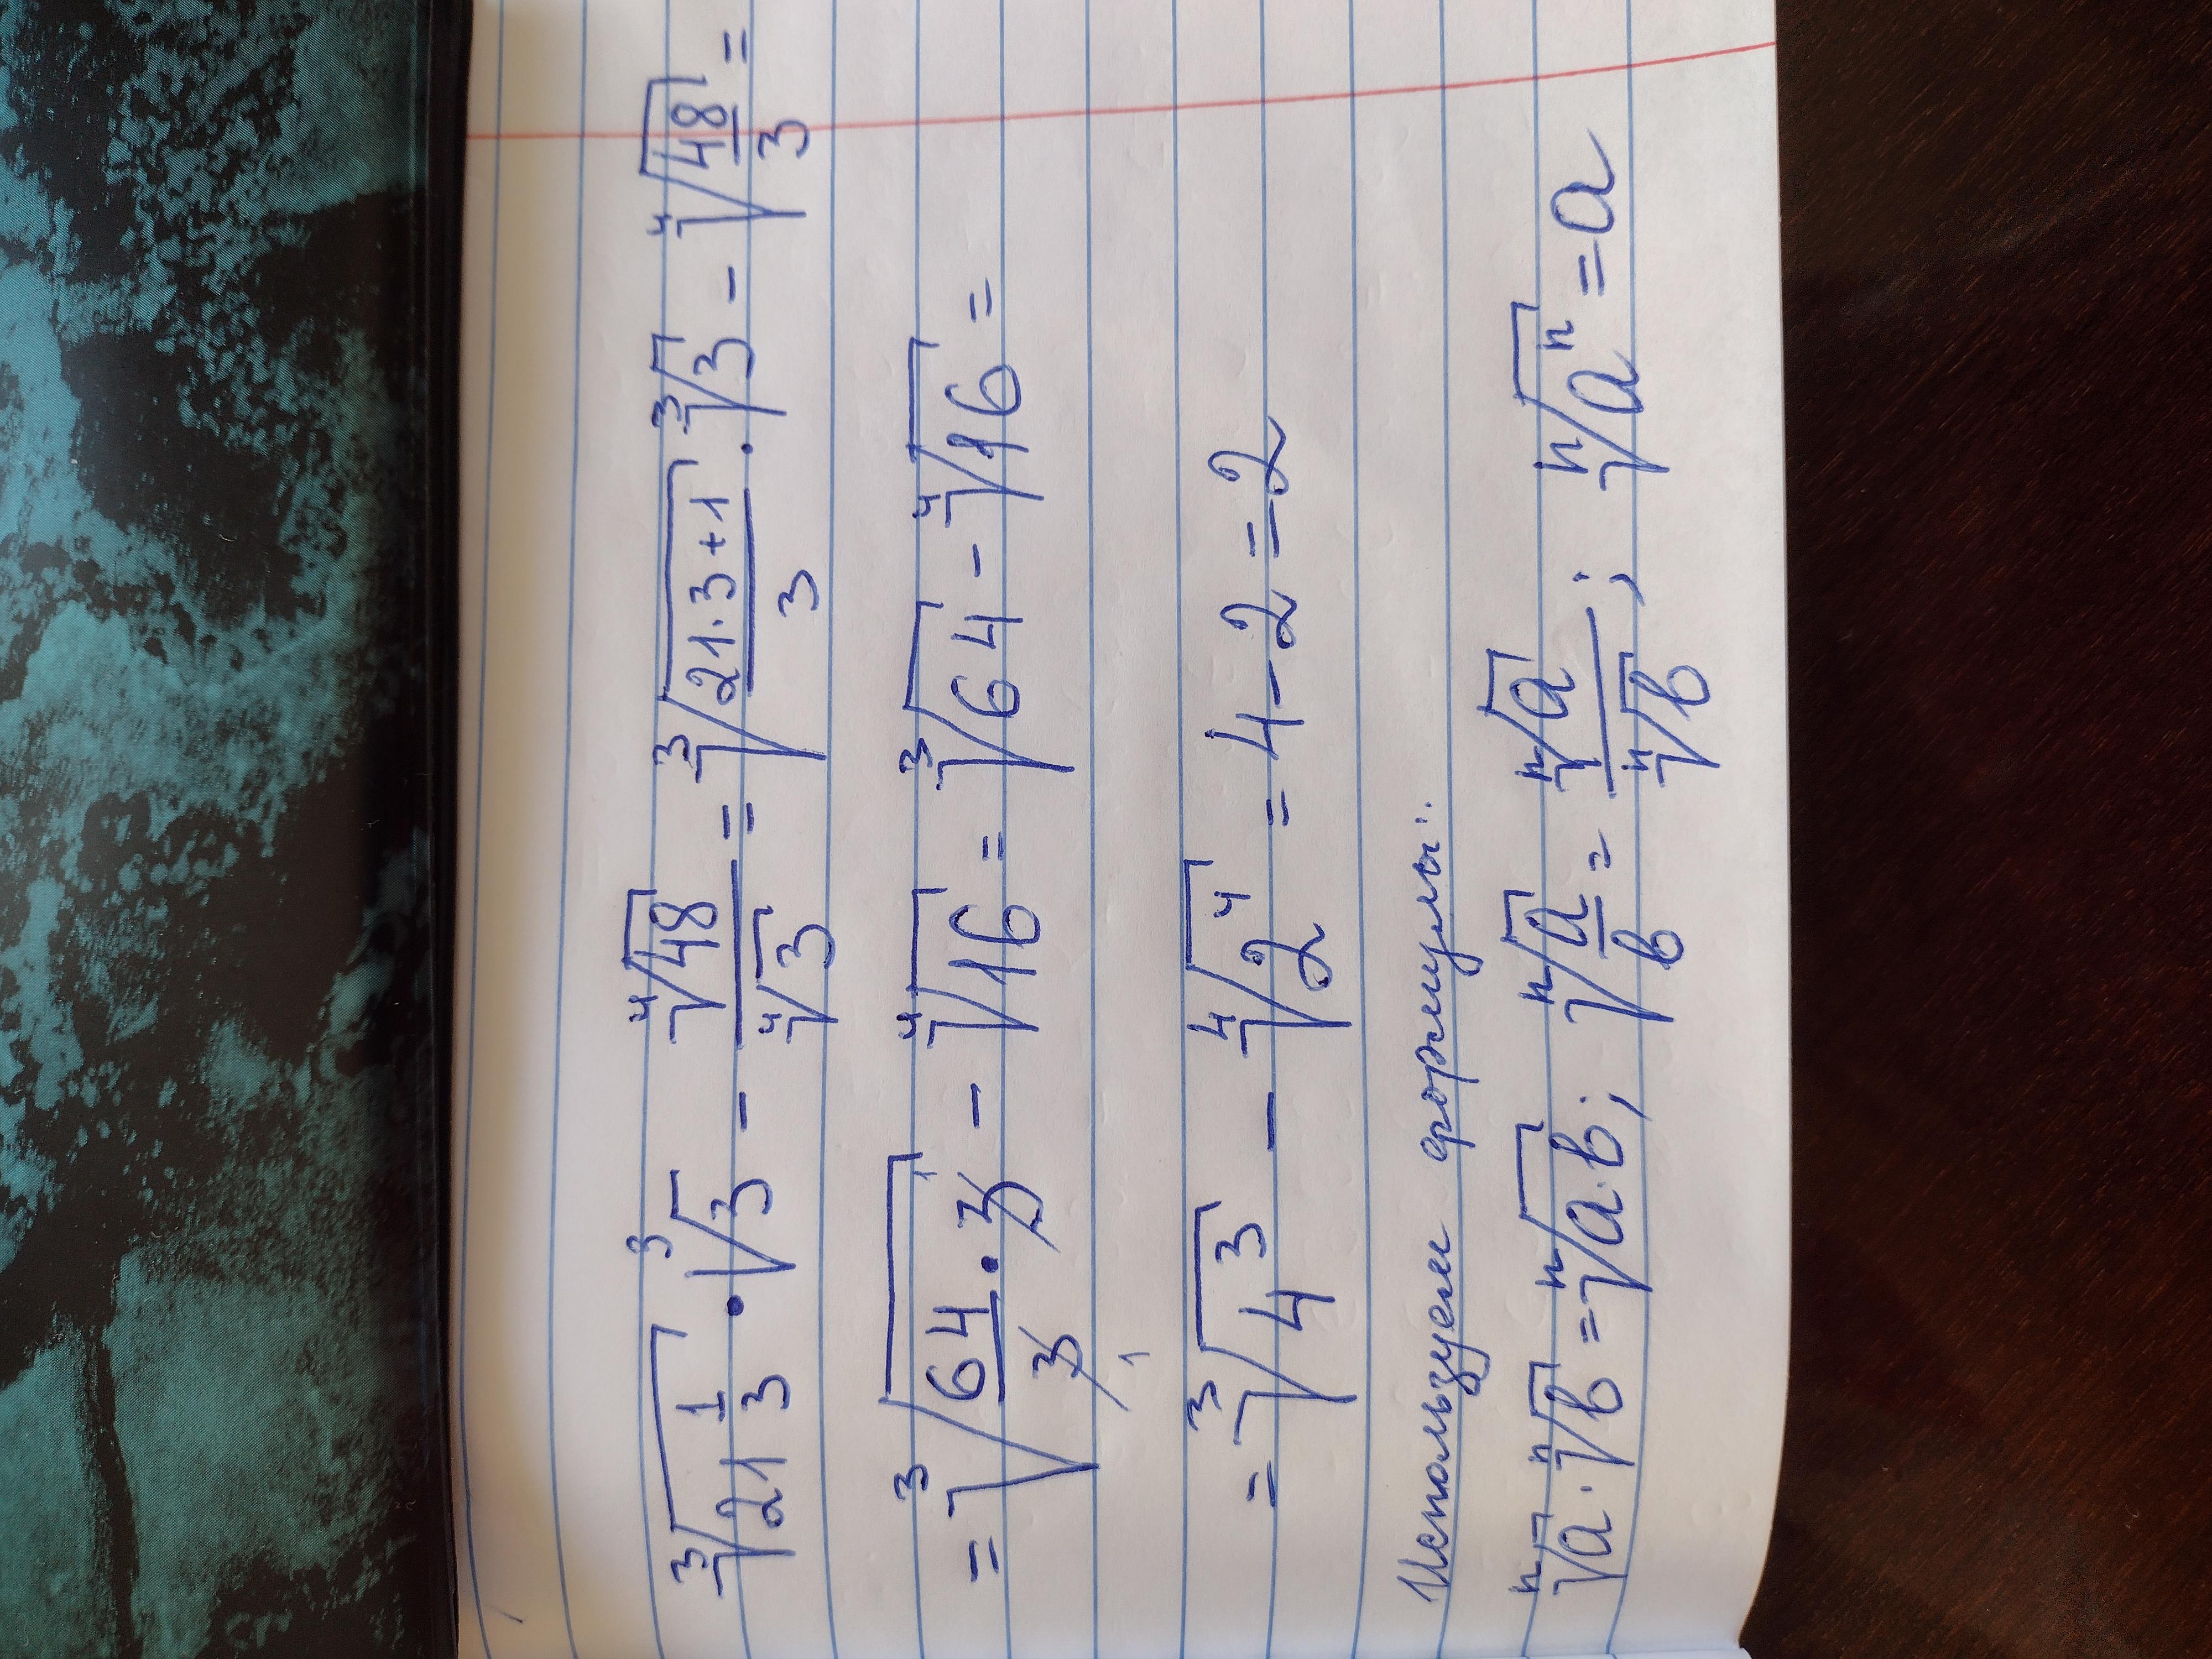 ∛(21 1/3) · ∛3 - ∜48/∜3 = ∛((21·3+1)/3) · ∛3 - ∜(48/3) =
= ∛(64/3 · 3) - ∜16 = ∛64 - ∜16 =
= ∛(4³) - ∜(2⁴) = 4 - 2 = 2
Используем формулы:
ⁿ√a · ⁿ√b = ⁿ√(a·b); ⁿ√(a/b) = ⁿ√a/ⁿ√b; ⁿ√(aⁿ) = a